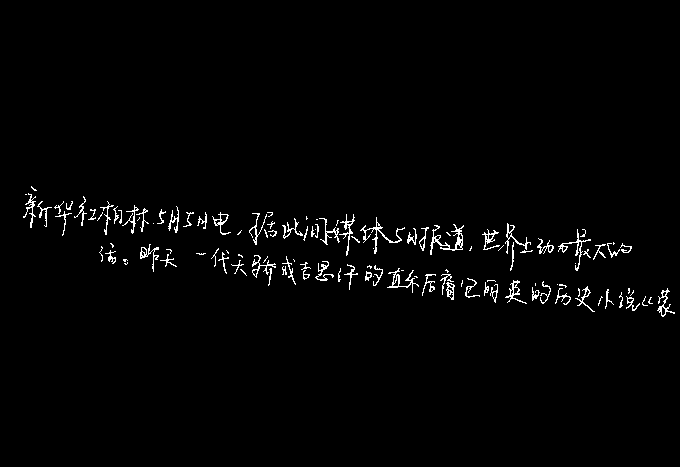 新华社柏林5月5日电，据此间媒体5日报道，世界上动力最大的
信。昨天一代天骄成吉思汗的直系后裔包丽英的历史小说《蒙